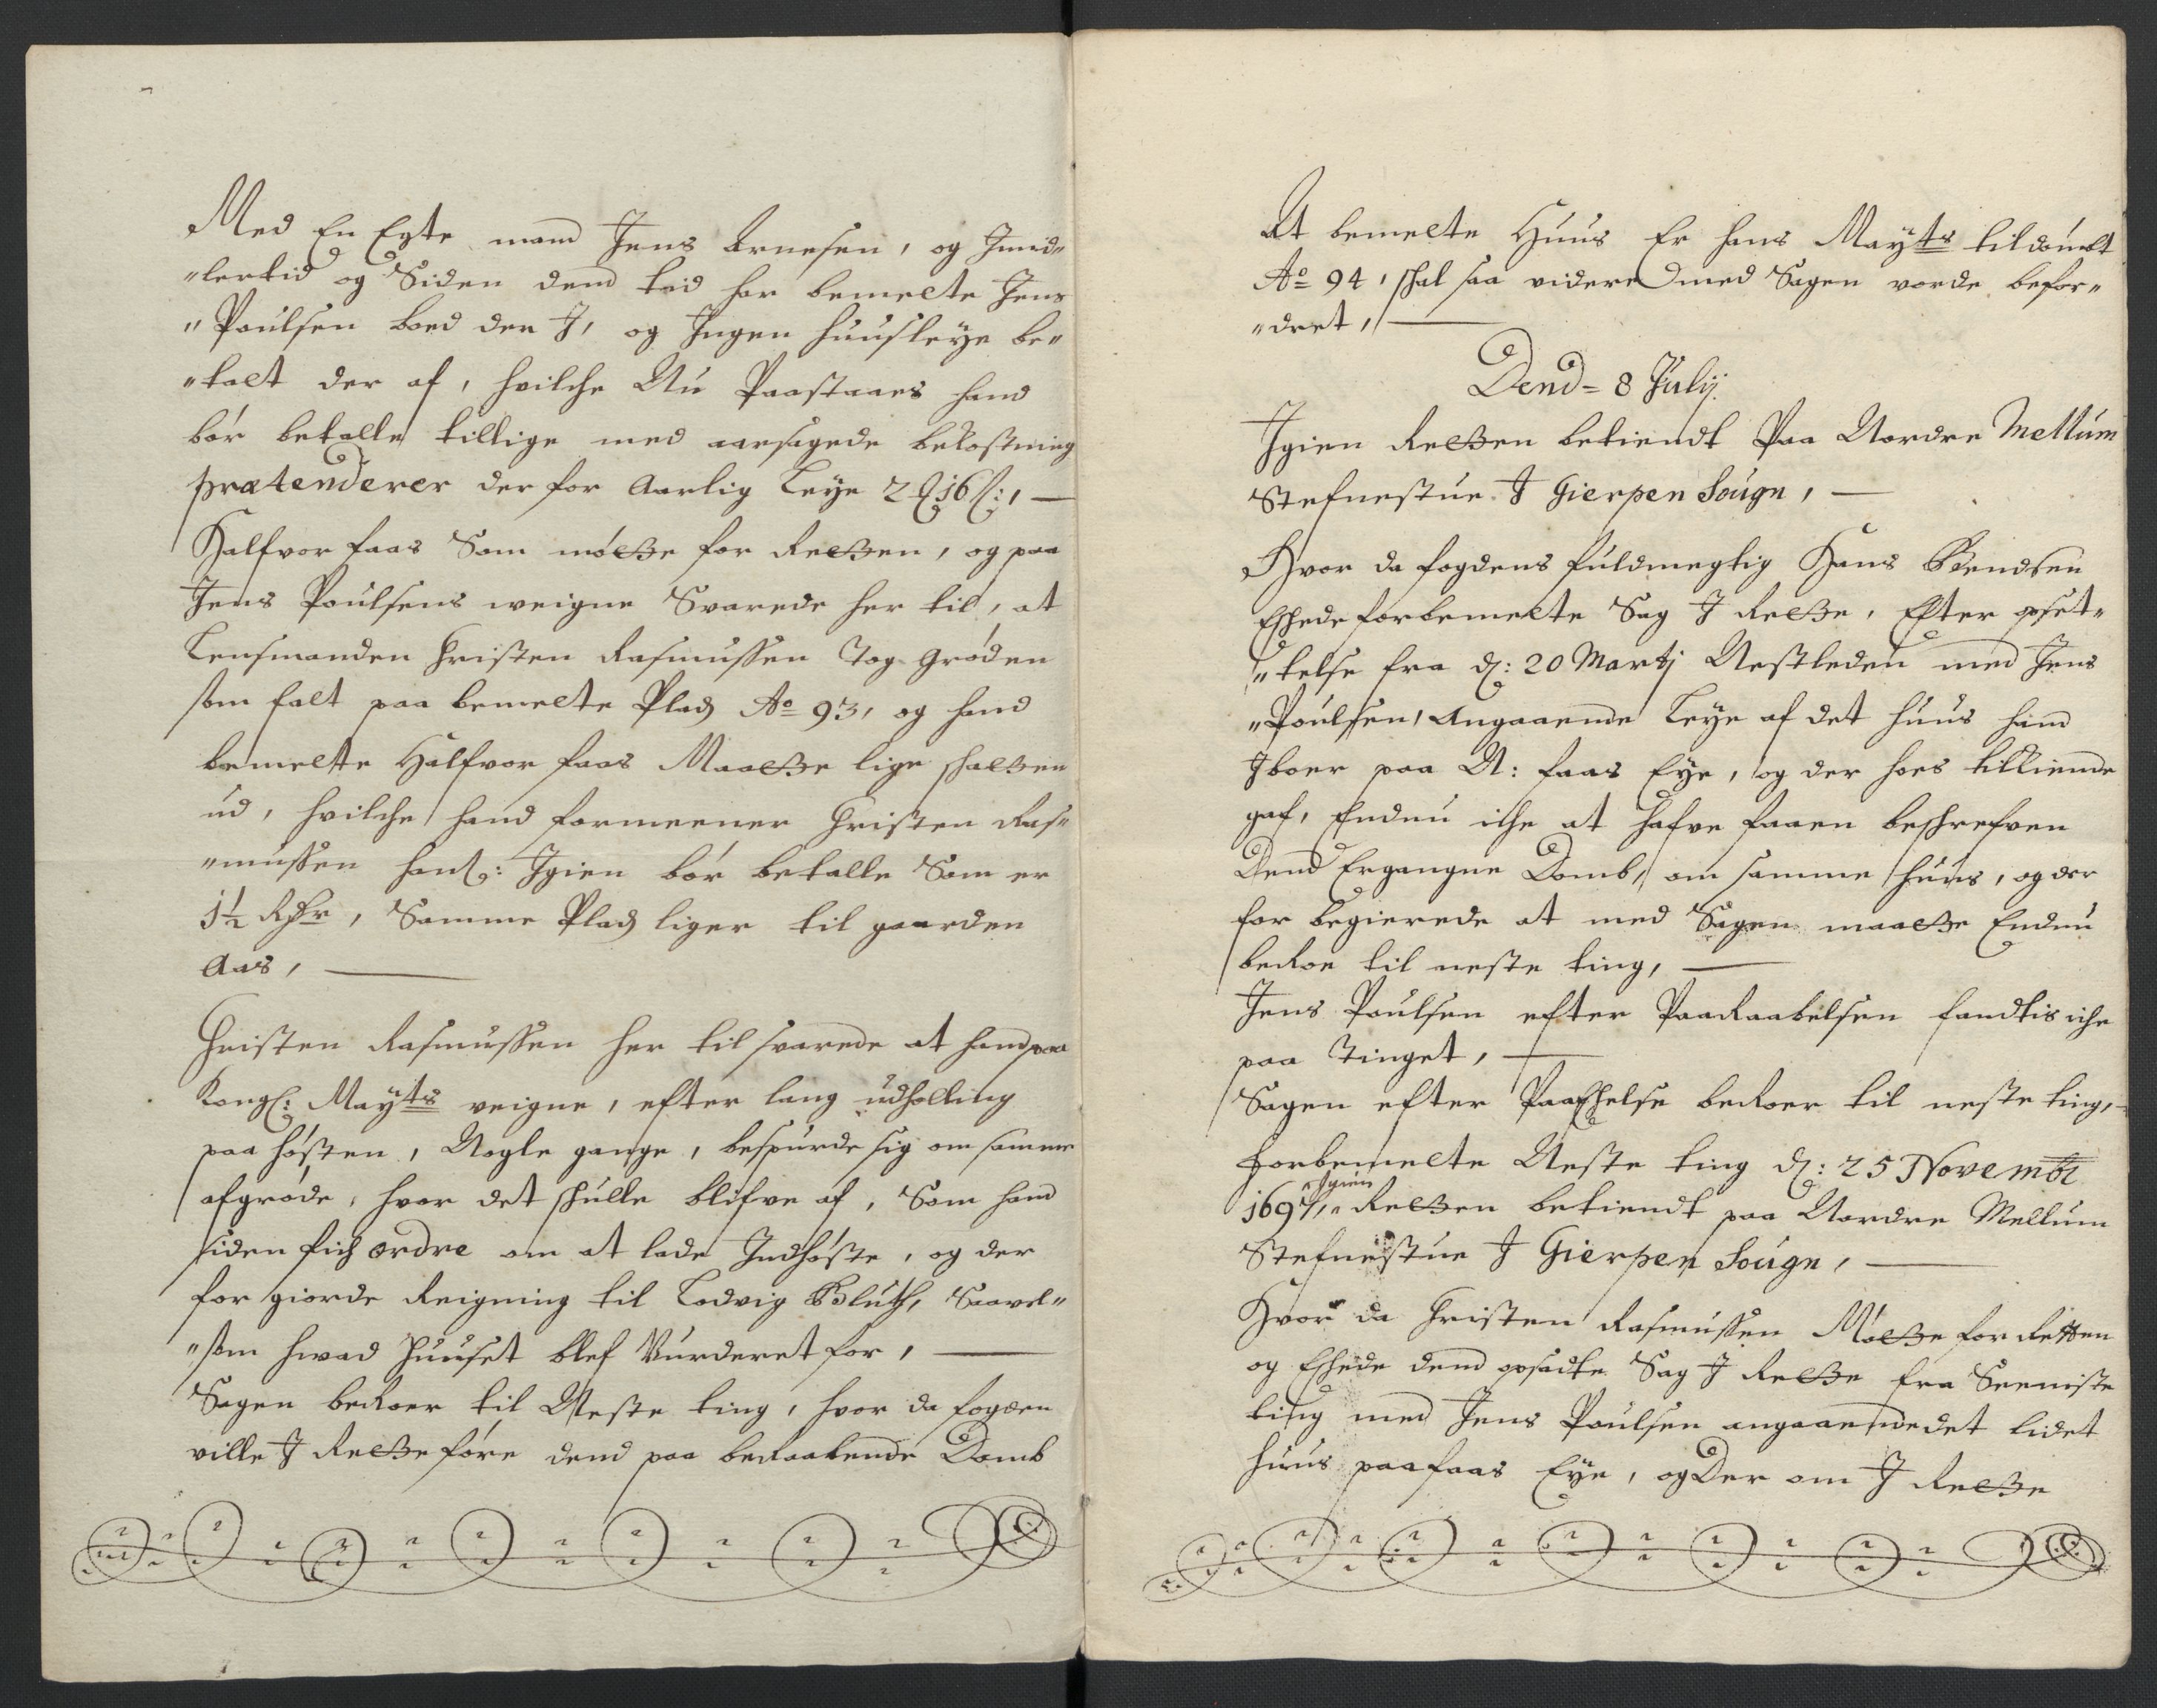 Med En Egte mand Jens Arnesen, og Jmid-
"lertid og Siden dend tid har bemelte Jens
"Poulsen boed der J, og Jngen huusleye be-
"talt der af, hvilche Nu Paastaaes hand
bør betalle tillige med aarsagede bekostning
prætenderer der for Aarlig Leye 2 16
Halfvor faas Som møtte for Retten, og paa
Jens Poulsens weigne Svarede her til, at
Lensmanden Christen Rasmussen Tog Grøden
som falt paa bemelte Plads Ao 93, og hand
bemelte Halfvor faas Maatte lige schatten
ud, hvilche hand formeener Christen Ras-
"mussen : Jgien bør betalle Som er
1½ Rdr, Samme Plads liger til gaarden
Aas,
Christen Rasmussen her til svarede at hand paa
Kongl: Mayts veigne, efter lang udholling
paa høsten, Nogle gange, bespurde sig om samme
afgrøde, hvor det schulle blifve af, Som hand
siden fich ordre om at lade Jndhøste, og der
for giorde Reigning til Lodvig Bluth, Saavel-
"som hwad Huuset blef Vurderet for,
Sagen beroer til Neste ting, hvor da fogden
ville J Rette føre dend paa beraabende Domb
At bemelte Huus Er hans Mayts tildømt
Ao 94, schal saa videre med Sagen vorde befor-
"dret,
Dend 8 Julij.
Jgien Retten betiendt Paa Nordre Mellum
Stefnestue J Gierpen Sougn,
Hvor da fogdens fuldmegtig Hans Bendsen
Eschede forbemelte Sag J Rette, Efter opset-
"telse fra d: 20 Martj Nestleden med Jens
"Poulsen, Angaaende Leye af det huus hand
Jboer paa N: faas Eye, og der hoes tilkiende
gaf, Endnu iche at hafve faaen beschrefven
Dend Ergangne Domb, om samme huus, og der
for begierede at med Sagen maatte Endnu
beroe til neste ting,
Jens Poulsen efter Paaraabelsen fandtis iche
paa Tinget,
Sagen efter Paaeschelse beroer til neste ting,
Forbemelte Neste ting d: 25 Novembr
1697, Jgien Retten betiendt paa Nordre Mellum
Stefnestue J Gierpen Sougn,
Hvor da Christen Rasmussen Møtte for Retten
og Eschede dend opsadte Sag J Rette fra Seeniste
ting med Jens Poulsen angaaende det lidet
huus paa faas Eye, og Der om J Rette